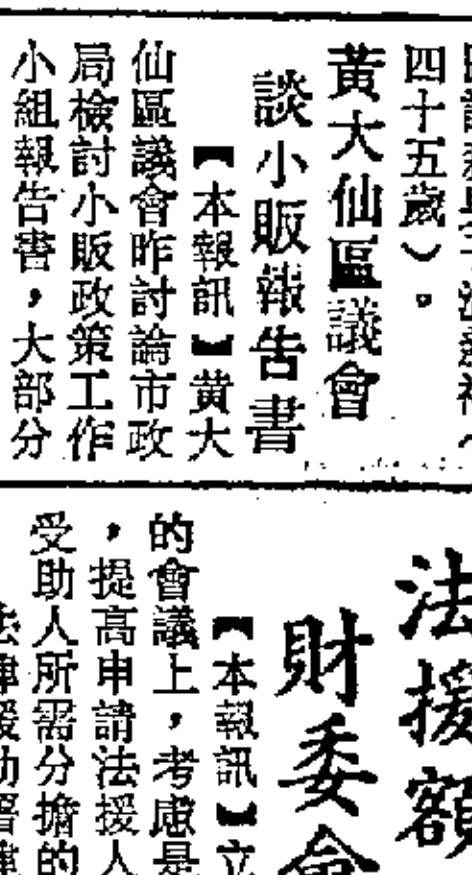 四十五歲)。
黃大仙區議會
談小販報告書
【本報訊】黃大
仙區議會昨討論市政
局檢討小販政策工作
小組報告書,大部分
法援額
財委會
【本報訊】立
的會議上,考慮是
,提高申請法援人
受助人所需分擔的
法律援助署律